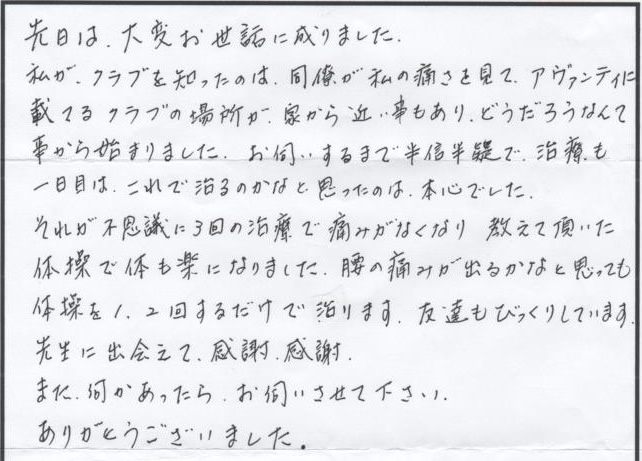 先日は、大変お世話に成りました.
私が、クラブを知ったのは、同僚が私の痛さを見て、アヴァンティに
載てるクラブの場所が、家から近い事もあり、どうだろうなんて
事から始まりました. お伺いするまで半信半疑で、治療も
一日目は、これで治るのかなと思ったのは、本心でした.
それが不思議に3回の治療で痛みがなくなり 教えて頂いた
体操で体も楽になりました. 腰の痛みが出るかなと思っても
体操を1、2回するだけで治ります. 友達もびっくりしています.
先生に出会えて、感謝.感謝.
また、何かあったら、お伺いさせて下さい.
ありがとうございました.